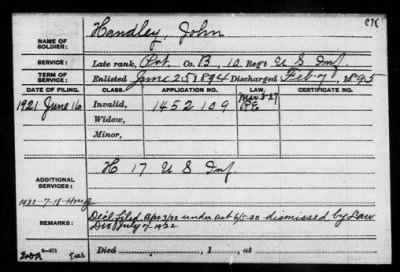 NAME OF SOLDIER: Handley, John
SERVICE: Late rank, Pvt. Co. B, 10 Reg't U S Inf.
TERM OF SERVICE: Enlisted June 25 1894 Discharged Feb 7, 1895
DATE OF FILING. CLASS. APPLICATION NO. LAW. CERTIFICATE NO.
1921 June 16 Invalid, 1452109
Widow,
Minor,
ADDITIONAL SERVICES: H 17 U S Inf.
REMARKS: Decl. filed Apr 3/22 under act 6/5-20 dismissed by Law
Div July 7 1922
Died , 1 , at